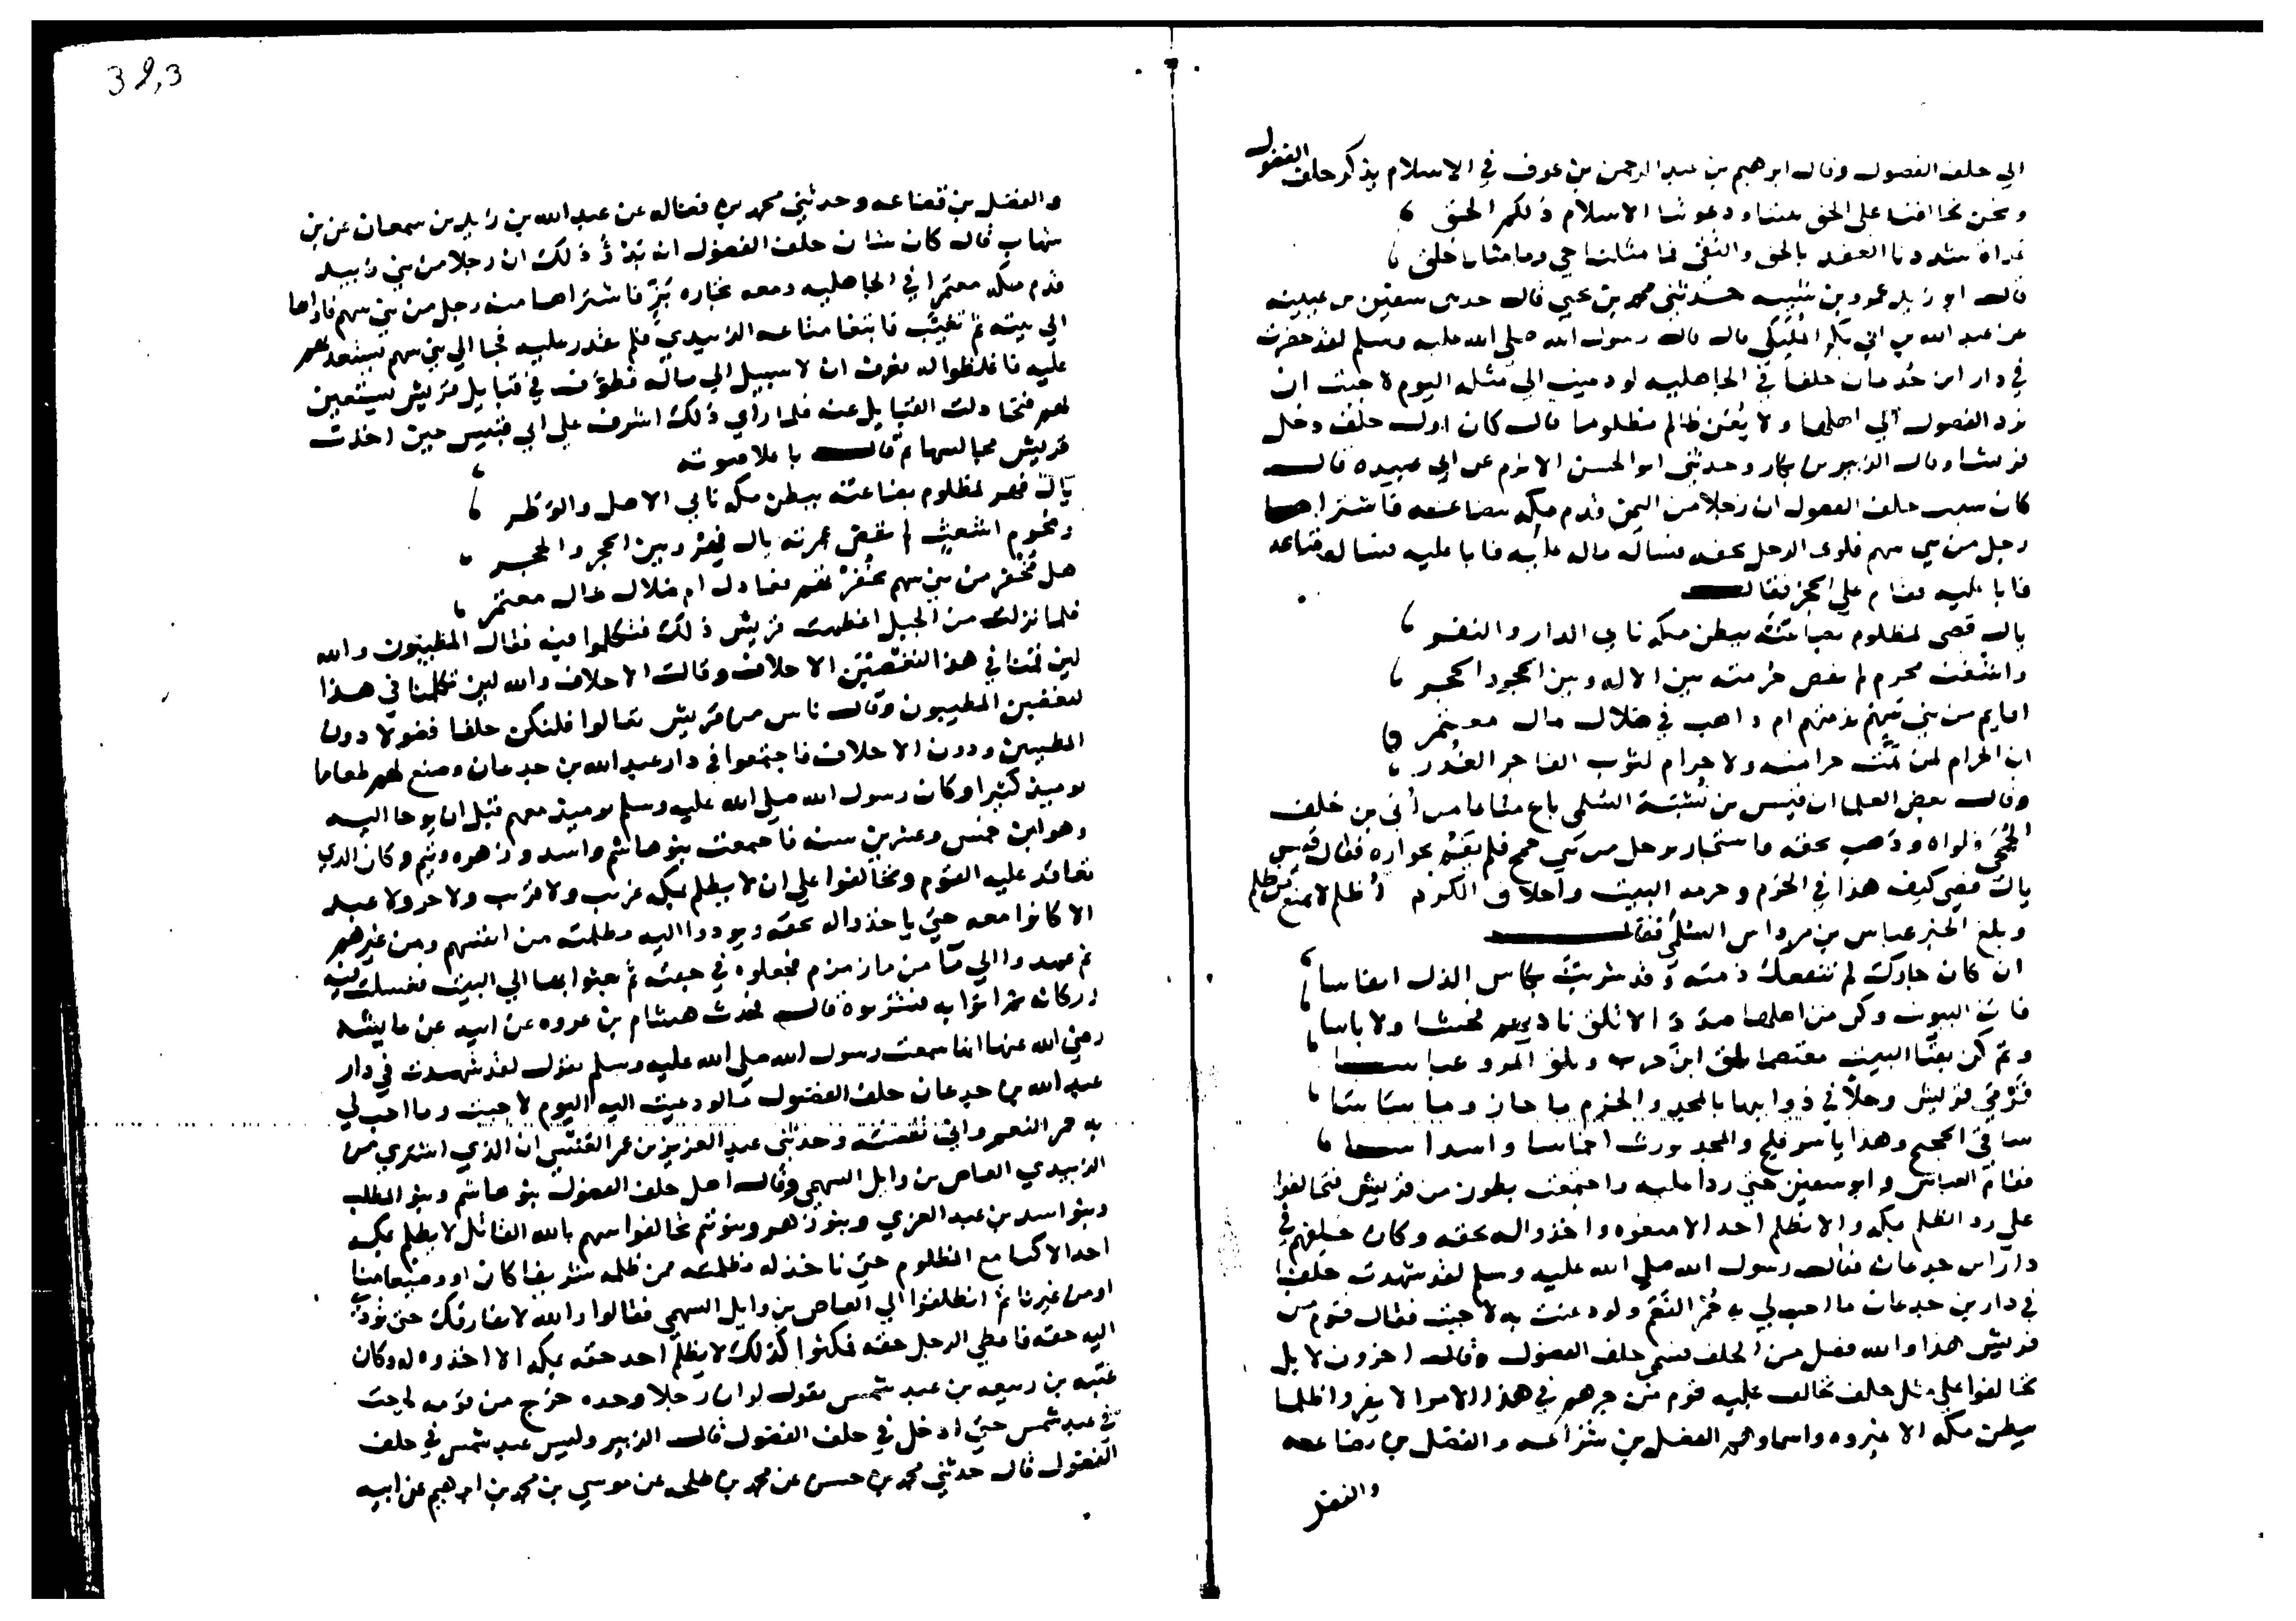 الي حلف الفضول وقال ابرهيم بن عبد الرحمن بن عوف في الاسلام يذكر حلف الفضول
ونحن تحالفنا على الحق بيننا ودعوتنا الاسلام ذلكم الحق
غداة شددنا العقد بالحق والتقى فما مثلنا حي وما مثلنا خلق
قال ابو زيد عمر بن شبيبه حدثني محمد بن يحيى قال حدثني سفين بن عيينه
عن عبد الله بن ابي بكر المليكي قال قال رسول الله صلى الله عليه وسلم لقد حضرت
في دار ابن جدعان حلفا في الجاهليه لو دعيت الي مثله اليوم لاجبت ان
نرد الفضول الي اهلها ولا يقر ظالم مظلوما قال كان اول حلف دخل
قريشا وقال الزبير بن بكار وحدثني ابو الحسن الاثرم عن ابي عبيده قال
كان سبب حلف الفضول ان رجلا من اليمن قدم مكه ببضاعته فاشتراها
رجل من بني سهم فلوى الرجل بحقه فساله ماله عليه فابا عليه فساله متاعه
فابا عليه فقام على الحجر فقال
يال قصى لمظلوم بضاعته ببطن مكه نايي الدار والنفر
واشعث محرم لم تقض حرمته بين الاله وبين الحجر والحجر
اقايم من بني سهم بذمتهم ام ذاهب في ضلال مال معتمر
ان الحرام لمن تمت حرامته ولا حرام لثوب الفاجر الغدر
وقال بعض العلما ان قيس بن شيبة السلمى باع متاعا من أبي بن خلف
الجمحى فلواه وذهب بحقه فاستجار برجل من بني جمح فلم يقم بجواره فقال قيس
يال قصي كيف هذا في الحرم وحرمه البيت واخلاق الكرم أظلم لا يمنع من ظلم
وبلغ الخبر عباس بن مرداس السلمى فقال
ان كان جارك لم تنفعك ذمته وقد شربت بكاس الذل انفاسا
فات البيوت وكن من اهلها صددا لا تلق ناديهم فحشا ولا باسا
وثم كن بفنا البيت معتصما تلق ابن حرب وتلق المرو عباسا
قرمي قريش وحلا في ذوابها بالمجد والحزم ما حازا وما ساسا
ساقي الحجيج وهذا ياسر فلج والمجد يورث اخماسا واسداسا
فقام العباس وابو سفين حتى ردا عليه واجتمعت بطون من قريش فتحالفوا
على رد الظلم بمكه والا يظلم احد الا منعوه واخذوا له بحقه وكان حلفهم في
دار ابن جدعان فقال رسول الله صلى الله عليه وسلم لقد شهدت حلفا
في دار بن جدعان ما احب لي به حمر النعم ولو دعيت به لاجبت فقال قوم من
قريش هذا والله فضل من الحلف فسمي حلف الفضول وقال اخرون لا بل
تحالفوا على مثل حلف تحالف عليه قوم من جرهم في هذا الامر الا يقروا ظلما
ببطن مكه الا غيروه واسماوهم الفضل بن شراعه والفضل بن بضاعه
والفضل
والفضل بن قضاعه وحدثني محمد بن فضاله عن عبد الله بن زيد بن سمعان عن بن
شهاب قال كان شان حلف الفضول ان بدؤ ذلك ان رجلا من بني زبيد
قدم مكه معتمرا في الجاهليه ومعه تجاره بز فاشتراها منه رجل من بني سهم فاواها
الي بيته ثم تغيب فابتغا متاعه الزبيدي فلم يقدر عليه فجا الي بني سهم يستعديهم
عليه فاغلظوا له فعرف ان لا سبيل الي ماله فطوف في قبايل قريش يستعين
بهم فتخاذلت القبايل عنه فلما راي ذلك اشرف على ابي قبيس حين اخذت
قريش مجالسها ثم قال باعلا صوته
يال فهر لمظلوم بضاعته ببطن مكه نايي الاهل والوطر
ومحرم اشعث لم يقض عمرته يال فهر وبين الحجر والحجر
هل مخفر من بني سهم بخفرتهم فعادل ام ضلال مال معتمر
فلما نزل من الجبل اعظمت قريش ذلك فتكلموا فيه فقال المطيبون والله
لين قمنا في هذا لنغضبن الاحلاف وقالت الاحلاف والله لين تكلمنا في هذا
لنغضبن المطيبون وقال ناس من قريش تعالوا فلنكن حلفا فضولا دون
المطيبين ودون الاحلاف فاجتمعوا في دار عبد الله بن جدعان وصنع لهم طعاما
يوميذ كثيرا وكان رسول الله صلى الله عليه وسلم يوميذ معهم قبل ان يوحا اليه
وهو ابن خمس وعشرين سنه فاجتمعت بنو هاشم واسد وزهره وتيم وكان الذي
تعاقد عليه القوم وتحالفوا علي ان لا يظلم بمكه غريب ولا قريب ولا حر ولا عبد
الا كانوا معه حتي ياخذوا له بحقه ويردوا اليه مظلمته من انفسهم ومن غيرهم
ثم عمدوا الي ما من ما زمزم فجعلوه في جفنة ثم بعثوا بها الي البيت فغسلت فيه
اركانه ثم اتوا به فشربوه قال فحدث هشام بن عروه عن ابيه عن عايشه
رضي الله عنها انها سمعت رسول الله صلى الله عليه وسلم يقول لقد شهدت في دار
عبد الله بن جدعان حلف الفضول ما لو دعيت اليه اليوم لاجبت وما احب لي
به حمر النعم واني نقضته وحدثني عبد العزيز بن عمر العنسي ان الذي اشترى من
الزبيدي العاص بن وايل السهمي وقال اهل حلف الفضول بنو هاشم وبنو المطلب
وبنو اسد بن عبد العزي وبنو زهره وبنو تيم تحالفوا بينهم بالله القائل لا يظلم بمكه
احدا الا كنا مع المظلوم حتي ناخذ له مظلمته ممن ظلمه شريفا كان او وضيعا منا
او من غيرنا ثم انطلقوا الي العاص بن وايل السهمي فقالوا والله لا نفارقك حتى تودي
اليه حقه فاعطي الرجل حقه فمكثوا كذلك لا يظلم احد حقه بمكه الا اخذوه له وكان
عتبه بن ربيعه بن عبد شمس يقول لو ان رجلا وحده خرج من قومه لخرجت
من عبد شمس حتي ادخل في حلف الفضول قال الزبير وليس عبد شمس في حلف
الفضول قال حدثني محمد بن حسن عن محمد بن طلحه عن موسي بن محمد بن ابرهيم عن ابيه